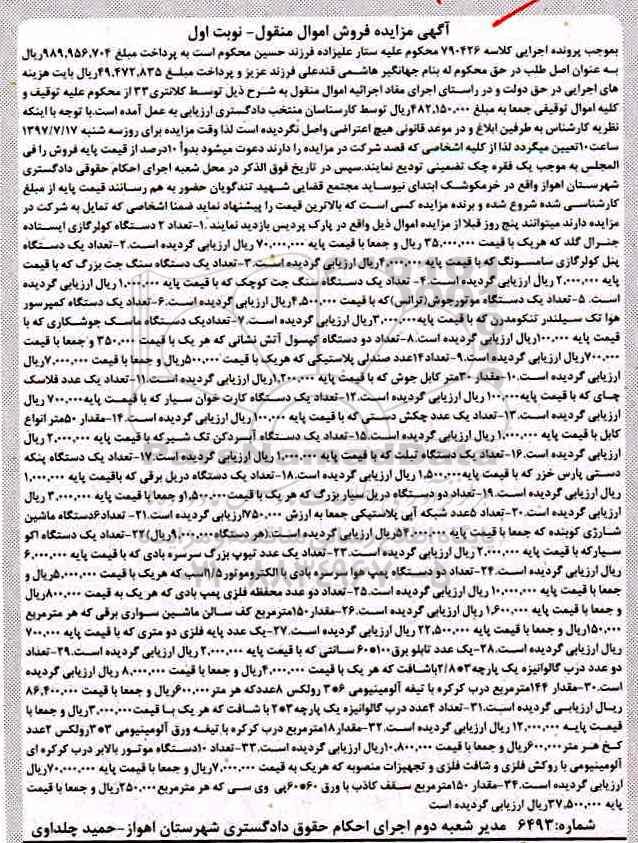 آگهی مزایده فروش اموال منقول- نوبت اول
بموجب پرونده اجرایی کلاسه ۷۹۰۴۲۶ محکوم علیه ستار علیزاده فرزند حسین محکوم است به پرداخت مبلغ ۹۸۹,۹۵۶,۷۰۴ریال
به عنوان اصل طلب در حق محکوم له بنام جهانگیر هاشمی قندعلی فرزند عزیز و پرداخت مبلغ ۴۹,۴۷۲,۸۳۵ریال بابت هزینه
های اجرایی در حق دولت و در راستای اجرای مفاد اجرائیه اموال منقول به شرح ذیل توسط کلانتری۳۳ از محکوم علیه توقیف و
کلیه اموال توقیفی جمعا به مبلغ ۴۸۲,۱۵۰,۰۰۰ریال توسط کارسناسان منتخب دادگستری ارزیابی به عمل آمده است.با توجه با اینکه
نظریه کارشناس به طرفین ابلاغ و در موعد قانونی هیچ اعتراضی واصل نگردیده است لذا وقت مزایده برای روزسه شنبه ۱۳۹۷/۷/۱۷
ساعت۱۰تعیین میگردد لذا از کلیه اشخاصی که قصد شرکت در مزایده را دارند دعوت میشود بدوآ ۱۰درصد از قیمت پایه فروش را فی
المجلس به موجب یک فقره چک تضمینی تودیع نمایند.سپس در تاریخ فوق الذکر در محل شعبه اجرای احکام حقوقی دادگستری
شهرستان اهواز واقع در خرمکوشک ابتدای نیوساید مجتمع قضایی شهید تندگویان حضور به هم رسانند قیمت پایه از مبلغ
کارشناسی شده شروع شده و برنده مزایده کسی است که بالاترین قیمت را پیشنهاد نماید ضمنا اشخاصی که تمایل به شرکت در
مزایده دارند میتوانند پنج روز قبلا از مزایده اموال ذیل واقع در پارک پردیس بازدید نمایند .۱-تعداد ۲ دستگاه کولرگازی ایستاده
جنرال گلد که هریک با قیمت ۳۵,۰۰۰,۰۰۰ ریال و جمعا با قیمت پایه ۷۰,۰۰۰,۰۰۰ ریال ارزیابی گردیده است.۲-تعداد یک دستگاه
پنل کولرگازی سامسونگ که با قیمت پایه ۴,۰۰۰,۰۰۰ریال ارزیابی گردیده است.۳-تعداد یک دستگاه سنگ جت بزرگ که با قیمت
پایه ۲,۰۰۰,۰۰۰ ریال ارزیابی گردیده است.۴- تعداد یک دستگاه سنگ جت کوچک که با قیمت پایه ۱,۰۰۰,۰۰۰ ریال ارزیابی گردیده
است. ۵-تعداد یک دستگاه موتورجوش(ترانس)که با قیمت ۴,۵۰۰,۰۰۰ریال ارزیابی گردیده است.۶-تعداد یک دستگاه کمپرسور
هوا تک سیلندر تنکومدرن که با قیمت پایه۳,۰۰۰,۰۰۰ریال ارزیابی گردیده است.۷-تعدادیک دستگاه ماسک جوشکاری که با
قیمت پایه ۱۰۰,۰۰۰ریال ارزیابی گردیده است.۸-تعداد دو دستگاه کپسول آتش نشانی که هر یک با قیمت ۳۵۰,۰۰۰ و جمعا با قیمت
۷۰۰,۰۰۰ریال ارزیابی گردیده است.۹-تعداد۱۴عدد صندلی پلاستیکی که هریک با قیمت ۵۰۰,۰۰۰ریال و جمعا با قیمت ۷,۰۰۰,۰۰۰ریال
ارزیابی گردیده است.۱۰-مقدار ۳۰متر کابل جوش که با قیمت پایه ۱,۲۰۰,۰۰۰ریال ارزیابی گردیده است.۱۱-تعداد یک عدد فلاسک
چای که با قیمت پایه۱۰۰,۰۰۰ ریال ارزیابی گردیده است.۱۲-تعداد یک دستگاه کارت خوان سیار که با قیمت پایه۷۰۰,۰۰۰ ریال
ارزیابی گردیده است.۱۳-تعداد یک عدد چکش دستی که با قیمت پایه ۱۰۰,۰۰۰ ریال ارزیابی گردیده است.۱۴-مقدار ۵۰متر انواع
کابل با قیمت پایه ۱,۰۰۰,۰۰۰ ریال ارزیابی گردیده است.۱۵-تعداد یک دستگاه آبسردکن تک شیرکه با قیمت پایه ۲,۰۰۰,۰۰۰ ریال
ارزیابی گردیده است.۱۶-تعداد یک دستگاه تبلت که با قیمت پایه ۱,۰۰۰,۰۰۰ ریال ارزیابی گردیده است.۱۷-تعداد یک دستگاه پنکه
دستی پارس خزر که با قیمت پایه۱,۵۰۰,۰۰۰ ریال ارزیابی گردیده است.۱۸-تعداد یک دستگاه دریل برقی که باقیمت پایه ۱,۰۰۰,۰۰۰
ریال ارزیابی گردیده است.۱۹-تعداد دو دستگاه دریل سیار بزرگ که هر یک با قیمت۱,۵۰۰,۰۰۰و جمعا با قیمت پایه ۳,۰۰۰,۰۰۰ ریال
ارزیابی گردیده است.۲۰-تعداد ۵عدد شبکه آبی پلاستیکی جمعا به ارزش ۷۵۰,۰۰۰ریال ارزیابی گردیده است.۲۱- تعداد۶دستگاه ماشین
شارژی کوبنده که جمعا با قیمت پایه ۵۴,۰۰۰,۰۰۰ریال ارزیابی گردیده است.(هر دستگاه۹,۰۰۰,۰۰۰ریال)۲۲-تعداد یک دستگاه اکو
سیارکه با قیمت پایه ۲,۰۰۰,۰۰۰ ریال ارزیابی گردیده است.۲۳-تعداد یک عدد تیوپ بزرگ سرسره بادی که با قیمت پایه ۶,۰۰۰,۰۰۰
ریال ارزیابی گردیده است.۲۴-تعداد دو دستگاه پمپ هوا سرسره بادی با الکتروموتور۱/۵اسب که هریک با قیمت ۵,۰۰۰,۰۰۰ریال و
جمعا با قیمت پایه ۱۰,۰۰۰,۰۰۰ ریال ارزیابی گردیده است.۲۵-تعداد دو عدد محفظه فلزی پمپ بادی که هر یک به قیمت ۸۰۰,۰۰۰ریال
و جمعا با قیمت پایه ۱,۶۰۰,۰۰۰ ریال ارزیابی گردیده است.۲۶-مقدار۱۵۰مترمربع کف سالن ماشین سواری برقی که هر مترمربع
۱۵۰,۰۰۰ریال و جمعا با قیمت پایه ۲۲,۵۰۰,۰۰۰ ریال ارزیابی گردیده است.۲۷-یک عدد پایه فلزی دو متری که با قیمت پایه ۷۰۰,۰۰۰
ریال ارزیابی گردیده است.۲۸-یک عدد تابلو برق۱۰۰*۶۰ سانتی که با قیمت پایه ۲,۰۰۰,۰۰۰ ریال ارزیابی گردیده است.۲۹-تعداد
دو عدد درب گالوانیزه یک پارچه۳*۲/۸باشافت که هر یک با قیمت ۴,۰۰۰,۰۰۰ریال و جمعا با قیمت ۸,۰۰۰,۰۰۰ ریال ارزیابی گردیده
است.۳۰-مقدار ۱۴۴مترمربع درب کرکره با تیغه آلومینیومی ۶*۳ رولکس ۸عددکه هر متر۶۰۰,۰۰۰ریال و جمعا با قیمت ۸۶,۴۰۰,۰۰۰
ریال ارزیابی گردیده است.۳۱-تعداد ۴عدد درب گالوانیزه یک پارچه۳*۲ با شافت که هر یک با قیمت۳,۰۰۰,۰۰۰ریال و جمعا با
قیمت پایه ۱۲,۰۰۰,۰۰۰ ریال ارزیابی گردیده است.۳۲-مقدار۱۸مترمربع درب کرکره با تیغه ورق آلومینیومی ۳*۳رولکس ۲عدد
کخ هر متر۶۰۰,۰۰۰ریال و جمعا با قیمت ۱۰,۸۰۰,۰۰۰ریال ارزیابی گردیده است.۳۳-تعداد ۱۰دستگاه موتور بالابر درب کرکره ای
آلومینیومی با روکش فلزی و شافت فلزی و تجهیزات منصوبه که هریک به قیمت ۷,۰۰۰,۰۰۰ریال و جمعا با قیمت پایه ۷۰,۰۰۰,۰۰۰ریال
ارزیابی گردیده است.۳۴-مقدار ۱۵۰مترمربع سقف کاذب با ورق ۶۰*۶۰پی وی سی که هر مترمربع۲۵۰,۰۰۰ریال و جمعا با قیمت
پایه ۳۷,۵۰۰,۰۰۰ریال ارزیابی گردیده است
شماره:۶۴۹۳ مدیر شعبه دوم اجرای احکام حقوق دادگستری شهرستان اهواز-حمید چلداوی